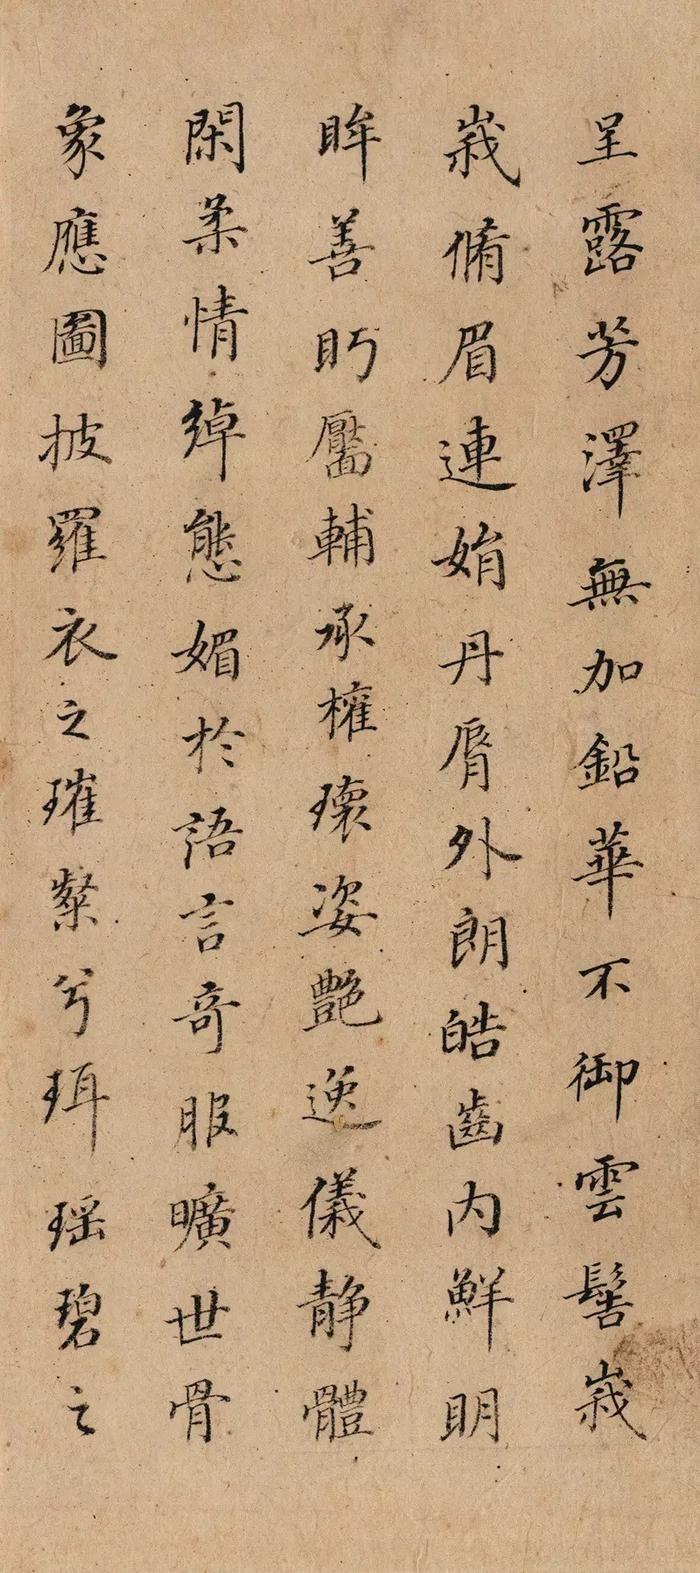 呈露芳澤無加鉛華不御雲髻峩
峩脩眉連娟丹脣外朗皓齒内鮮明
眸善眄靨輔承權瓌姿艶逸儀静體
閑柔情綽態媚於語言奇服曠世骨
象應圖披羅衣之璀粲兮珥瑶碧之